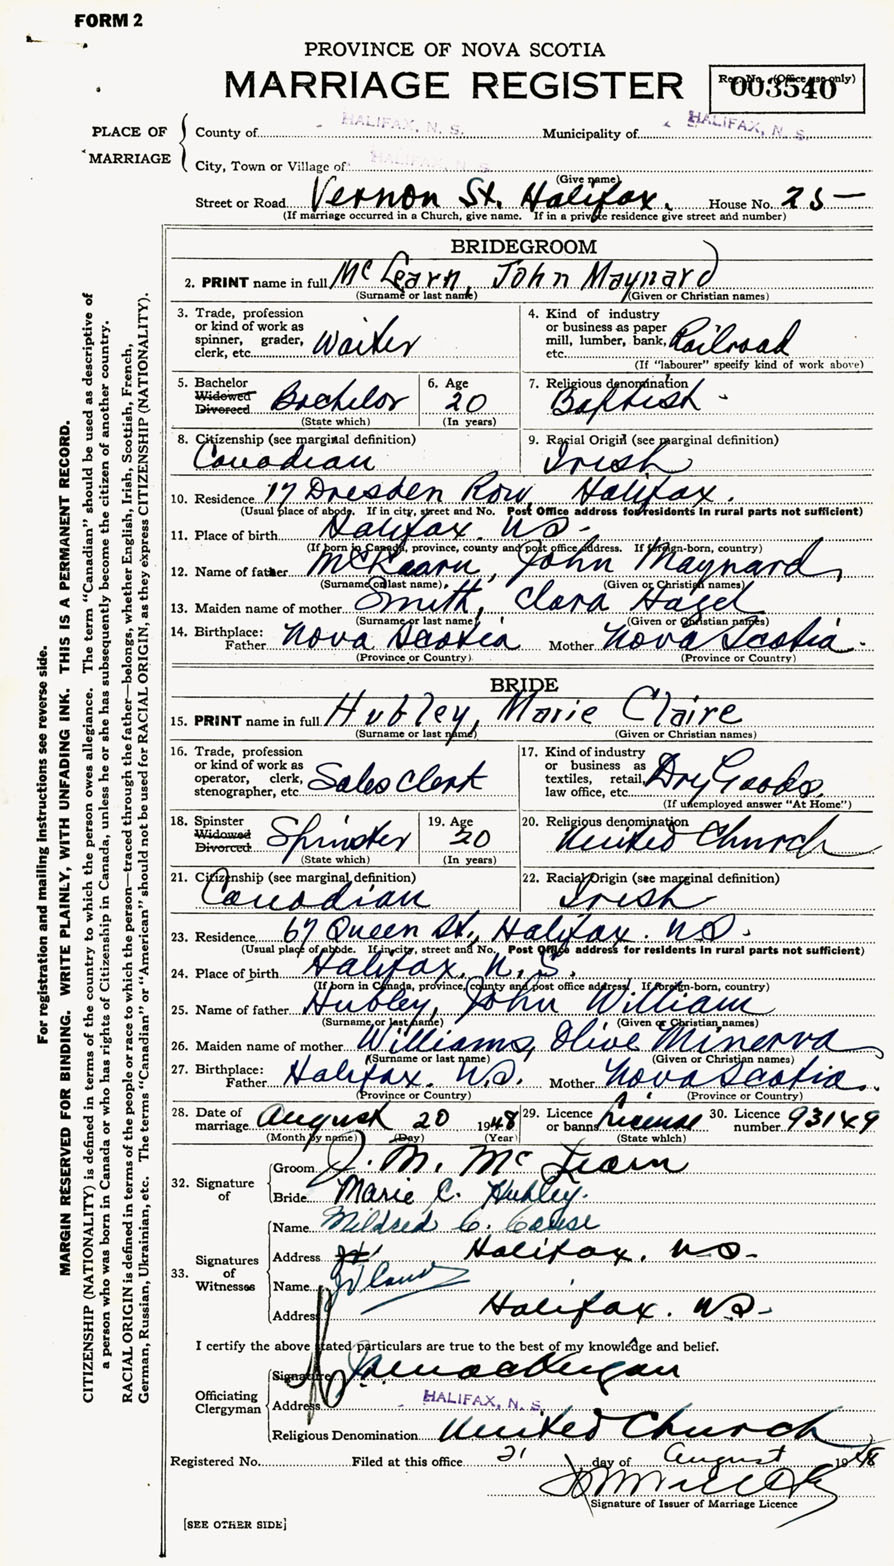 FORM 2
PROVINCE OF NOVA SCOTIA
MARRIAGE REGISTER
Reg. No. (Office use only)
003540
PLACE OF MARRIAGE
County of HALIFAX, N. S. Municipality of HALIFAX, N. S.
City, Town or Village of HALIFAX, N. S.
(Give name)
Street or Road Vernon St. Halifax. House No. 25 —
(If marriage occurred in a Church, give name. If in a private residence give street and number)
BRIDEGROOM
2. PRINT name in full McLearn, John Maynard
(Surname or last name) (Given or Christian names)
3. Trade, profession or kind of work as spinner, grader, clerk, etc. Waiter
4. Kind of industry or business as paper mill, lumber, bank, etc. Railroad
(If "labourer" specify kind of work above)
5. Bachelor Widowed Divorced Bachelor
(State which)
6. Age 20
(In years)
7. Religious denomination Baptist -
8. Citizenship (see marginal definition)
Canadian
9. Racial Origin (see marginal definition)
Irish
10. Residence 17 Dresden Row, Halifax.
(Usual place of abode. If in city, street and No. Post Office address for residents in rural parts not sufficient)
11. Place of birth Halifax NS -
(If born in Canada, province, county and post office address. If foreign-born, country)
12. Name of father McLearn, John Maynard,
(Surname or last name) (Given or Christian names)
13. Maiden name of mother Smith, Clara Hazel
(Surname or last name) (Given or Christian names)
14. Birthplace: Father Nova Scotia Mother Nova Scotia.
(Province or Country) (Province or Country)
BRIDE
15. PRINT name in full Hubley, Marie Claire
(Surname or last name) (Given or Christian names)
16. Trade, profession or kind of work as operator, clerk, stenographer, etc Sales Clerk
17. Kind of industry or business as textiles, retail, law office, etc. Dry Goods
(If unemployed answer "At Home")
18. Spinster Widowed Divorced Spinster
(State which)
19. Age 20
(In years)
20. Religious denomination
United Church
21. Citizenship (see marginal definition)
Canadian
22. Racial Origin (see marginal definition)
Irish
23. Residence 67 Queen St., Halifax. NS.
(Usual place of abode. If in city, street and No. Post Office address for residents in rural parts not sufficient)
24. Place of birth Halifax. N. S.
(If born in Canada, province, county and post office address. If foreign-born, country)
25. Name of father Hubley, John William
(Surname or last name) (Given or Christian names)
26. Maiden name of mother Williams, Olive Minerva
(Surname or last name) (Given or Christian names)
27. Birthplace: Father Halifax. N.S. Mother Nova Scotia.
(Province or Country) (Province or Country)
28. Date of marriage August 20 1948
(Month by name) (Day) (Year)
29. Licence or banns License
(State which)
30. Licence number 93149
32. Signature of
Groom J. M. McLearn
Bride Marie C. Hubley.
33. Signatures of Witnesses
Name Mildred C.
Address Halifax. NS -
Name
Address Halifax. NS -
I certify the above stated particulars are true to the best of my knowledge and belief.
Officiating Clergyman
Signature
Address HALIFAX, N. S.
Religious Denomination United Church
Registered No. Filed at this office 21 day of August 1948
Signature of Issuer of Marriage Licence
[SEE OTHER SIDE]
For registration and mailing instructions see reverse side.
MARGIN RESERVED FOR BINDING. WRITE PLAINLY, WITH UNFADING INK. THIS IS A PERMANENT RECORD.
CITIZENSHIP (NATIONALITY) is defined in terms of the country to which the person owes allegiance. The term "Canadian" should be used as descriptive of
a person who was born in Canada or who has rights of Citizenship in Canada, unless he or she has subsequently become the citizen of another country.
RACIAL ORIGIN is defined in terms of the people or race to which the person—traced through the father—belongs, whether English, Irish, Scottish, French,
German, Russian, Ukrainian, etc. The terms "Canadian" or "American" should not be used for RACIAL ORIGIN, as they express CITIZENSHIP (NATIONALITY).